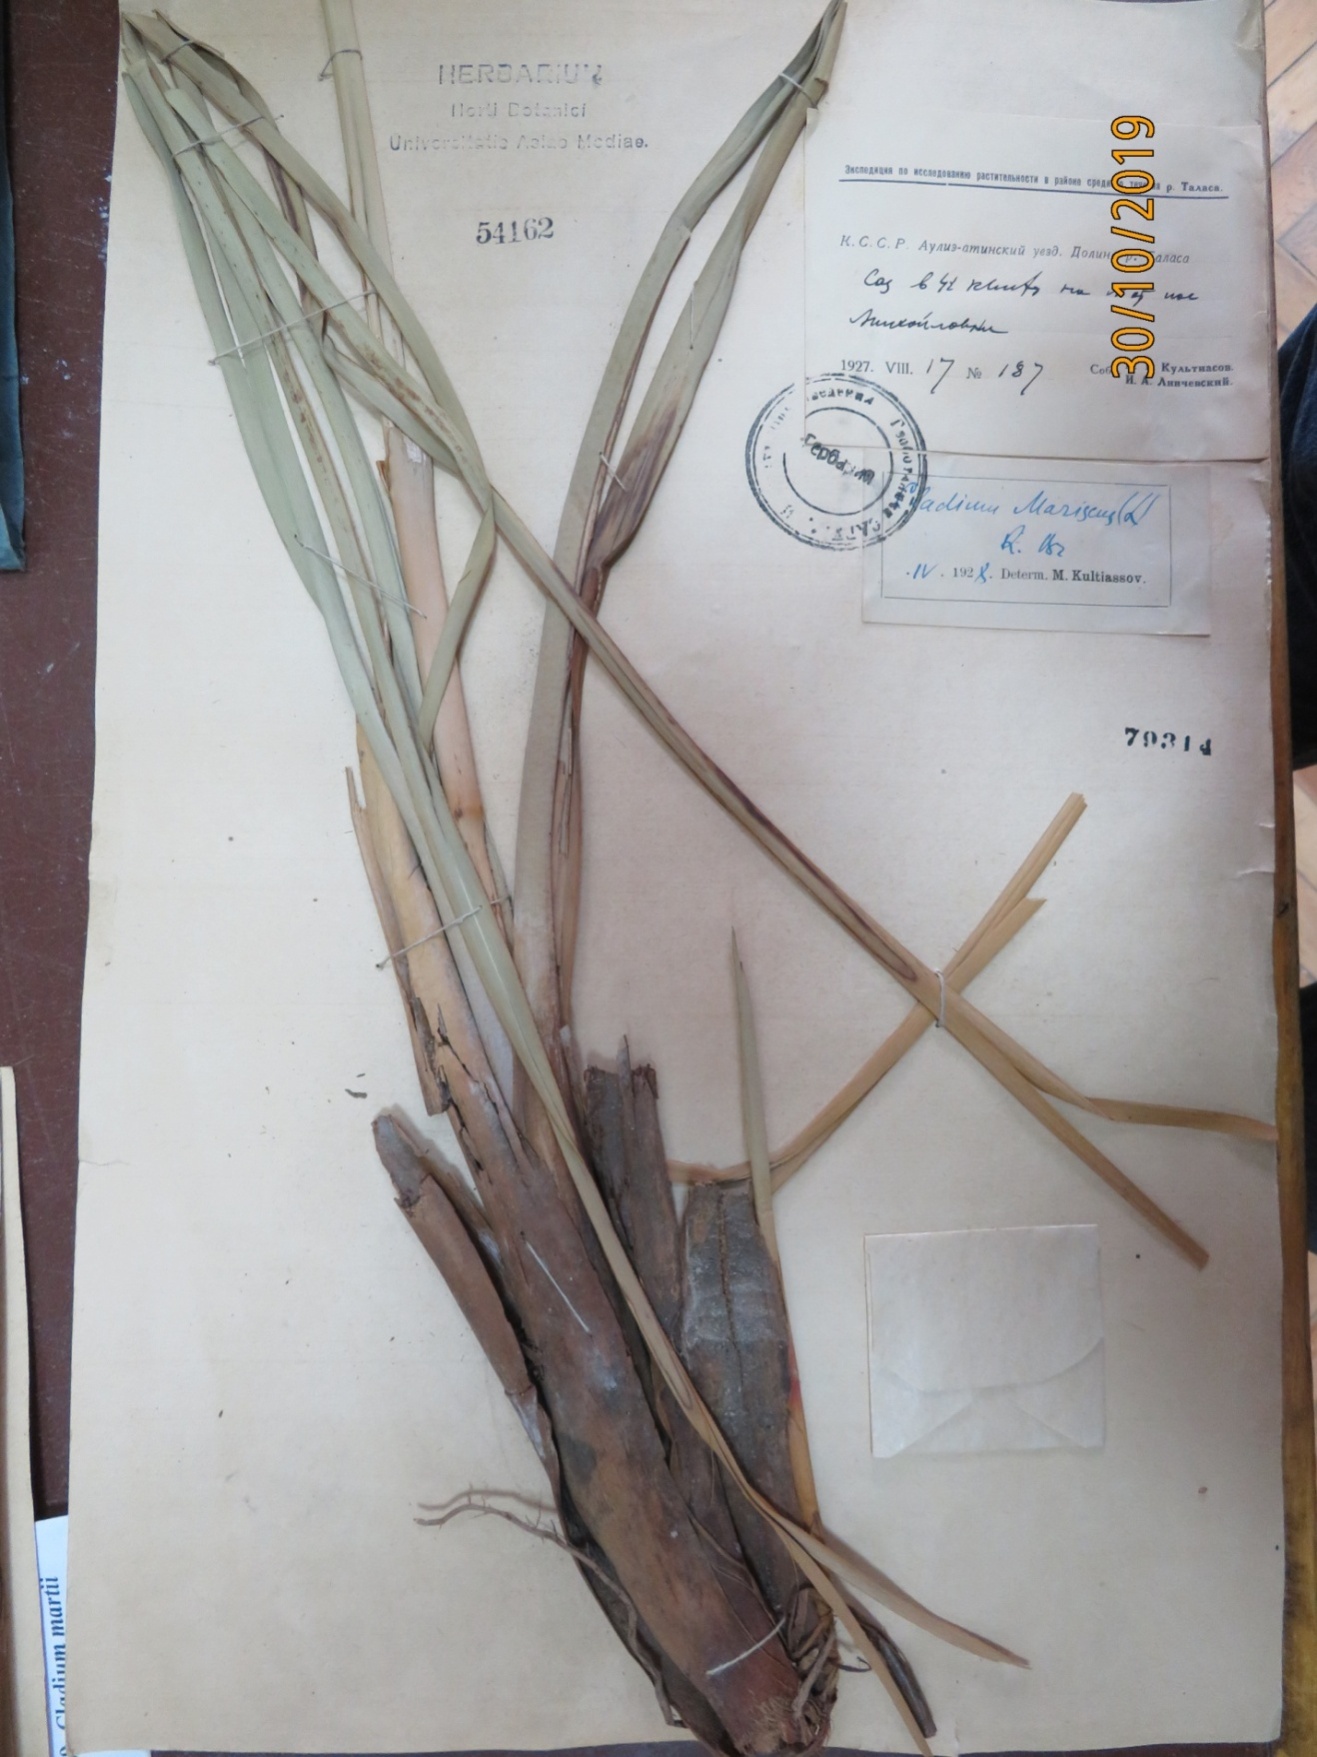 HERBARIUM
Horti Botanici
Universitatis Asiae Mediae.
54162
Экспедиция по исследованию растительности в районе р. Таласа.
К.С.С.Р. Аулиэ-атинский уезд. Долин р. Таласа
Саз в
Михайловки
1927. VIII. 17 № 187
Культиасов.
И. А. Линчевский.
Гербарий
Cladium Mariscus (L)
R. Br
.IV. 1928. Determ. M. Kultiassov.
79314
30/10/2019
Cladium martii